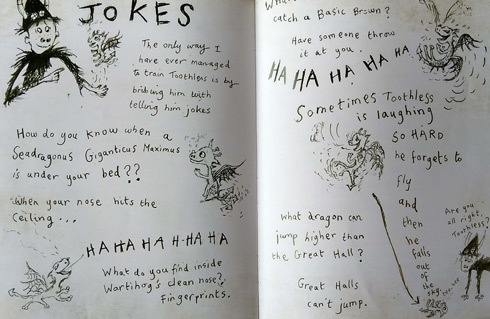 JOKES
The only way I
have ever managed
to train Toothless is by
bribing him with
telling him jokes
How do you know when a
Seadragonus Giganticus Maximus
is under your bed??
When your nose hits the
Ceiling...
HA HA HA H-HA HA
What do you find inside
Wartihog's clean nose?
Fingerprints.
catch a Basic Brown?
Have someone throw
it at you.
HA HA HA HA HA
Sometimes Toothless
is laughing
SO HARD
he forgets to
fly
and
then
he
falls
out
of
the
sky.
What dragon can
jump higher than
the Great Hall?
Great Halls
can't jump.
Are you
all right,
Toothless?